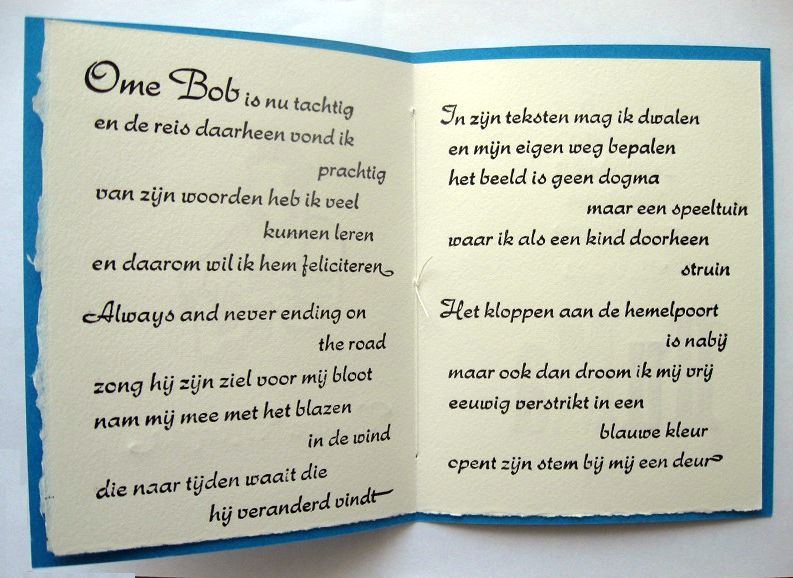 Ome Bob is nu tachtig
en de reis daarheen vond ik
prachtig
van zijn woorden heb ik veel
kunnen leren
en daarom wil ik hem feliciteren
Always and never ending on
the road
zong hij zijn ziel voor mij bloot
nam mij mee met het blazen
in de wind
die naar tijden waait die
hij veranderd vindt
In zijn teksten mag ik dwalen
en mijn eigen weg bepalen
het beeld is geen dogma
maar een speeltuin
waar ik als een kind doorheen
struin
Het kloppen aan de hemelpoort
is nabij
maar ook dan droom ik mij vrij
eeuwig verstrikt in een
blauwe kleur
opent zijn stem bij mij een deur